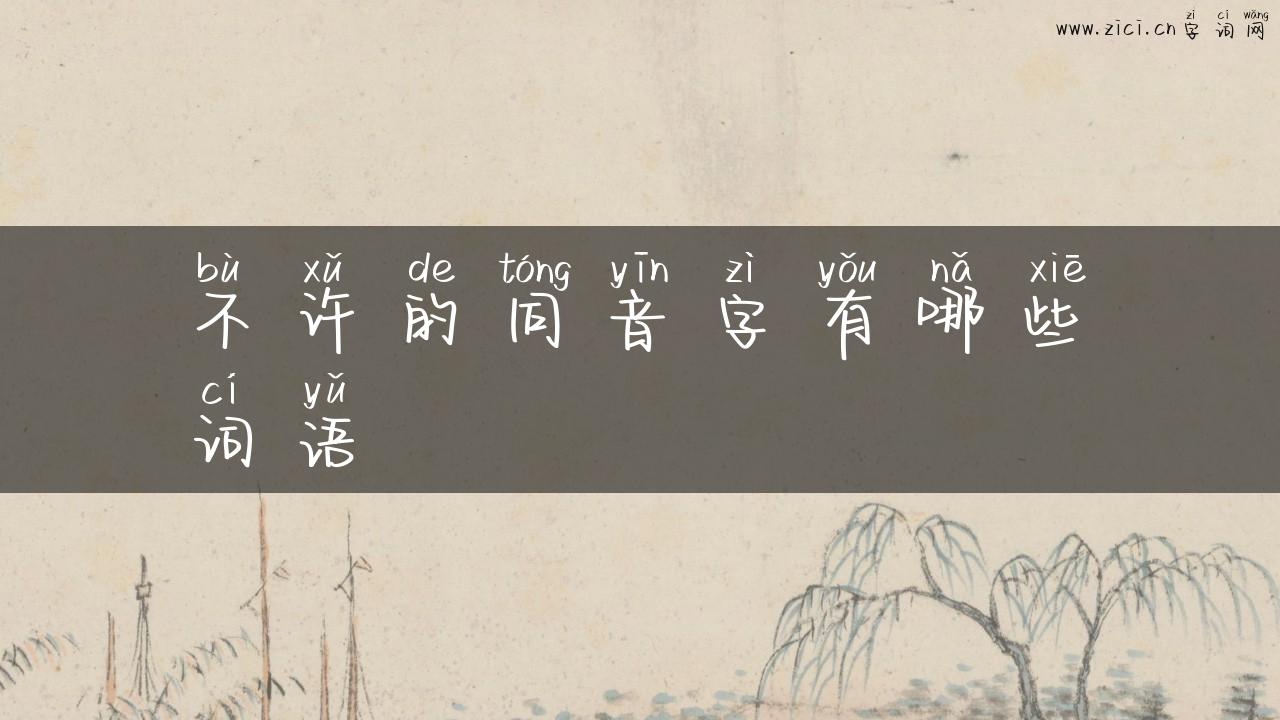 zì cí wǎng
www.zici.cn 字词网
bù xǔ de tóng yīn zì yǒu nǎ xiē
不许的同音字有哪些
cí yǔ
词语